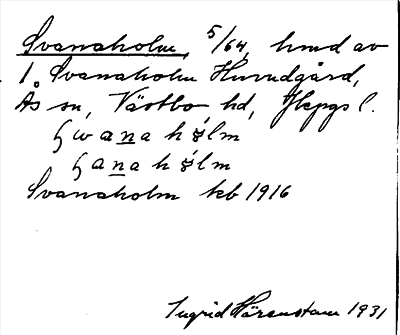 Svanaholm, 5/64, hmd av
1 Svanaholm Huvudgård,
Ås sn, Västbo hd, Jkpgs l.
Svanaholm kb 1916
Ingrid Härenstam 1931